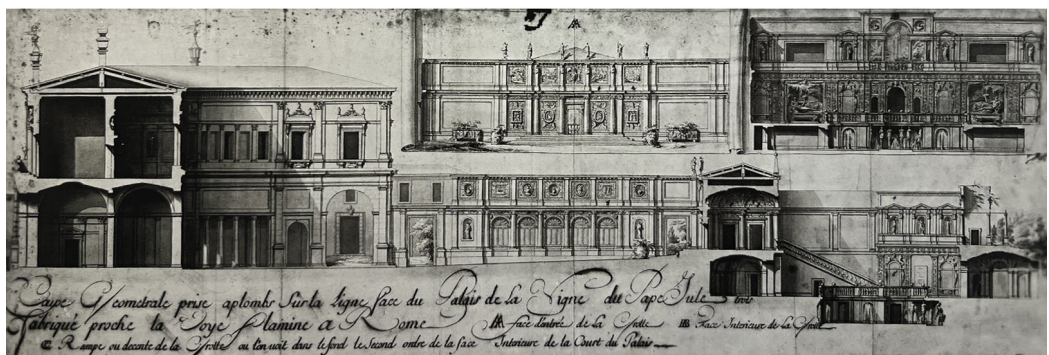 AA
Coupe Géometrale prise aplombs Sur la Ligne face du Palais de la Vigne du Pape Jule trois
fabriqué proche la Voye flamine a Rome AA face d'entrée de la Grotte BB Face Interieure de la Grotte
C Rampe ou decente de la Grotte ou l'on voit dans le fond le Second ordre de la face Interieure de la Court du Palais